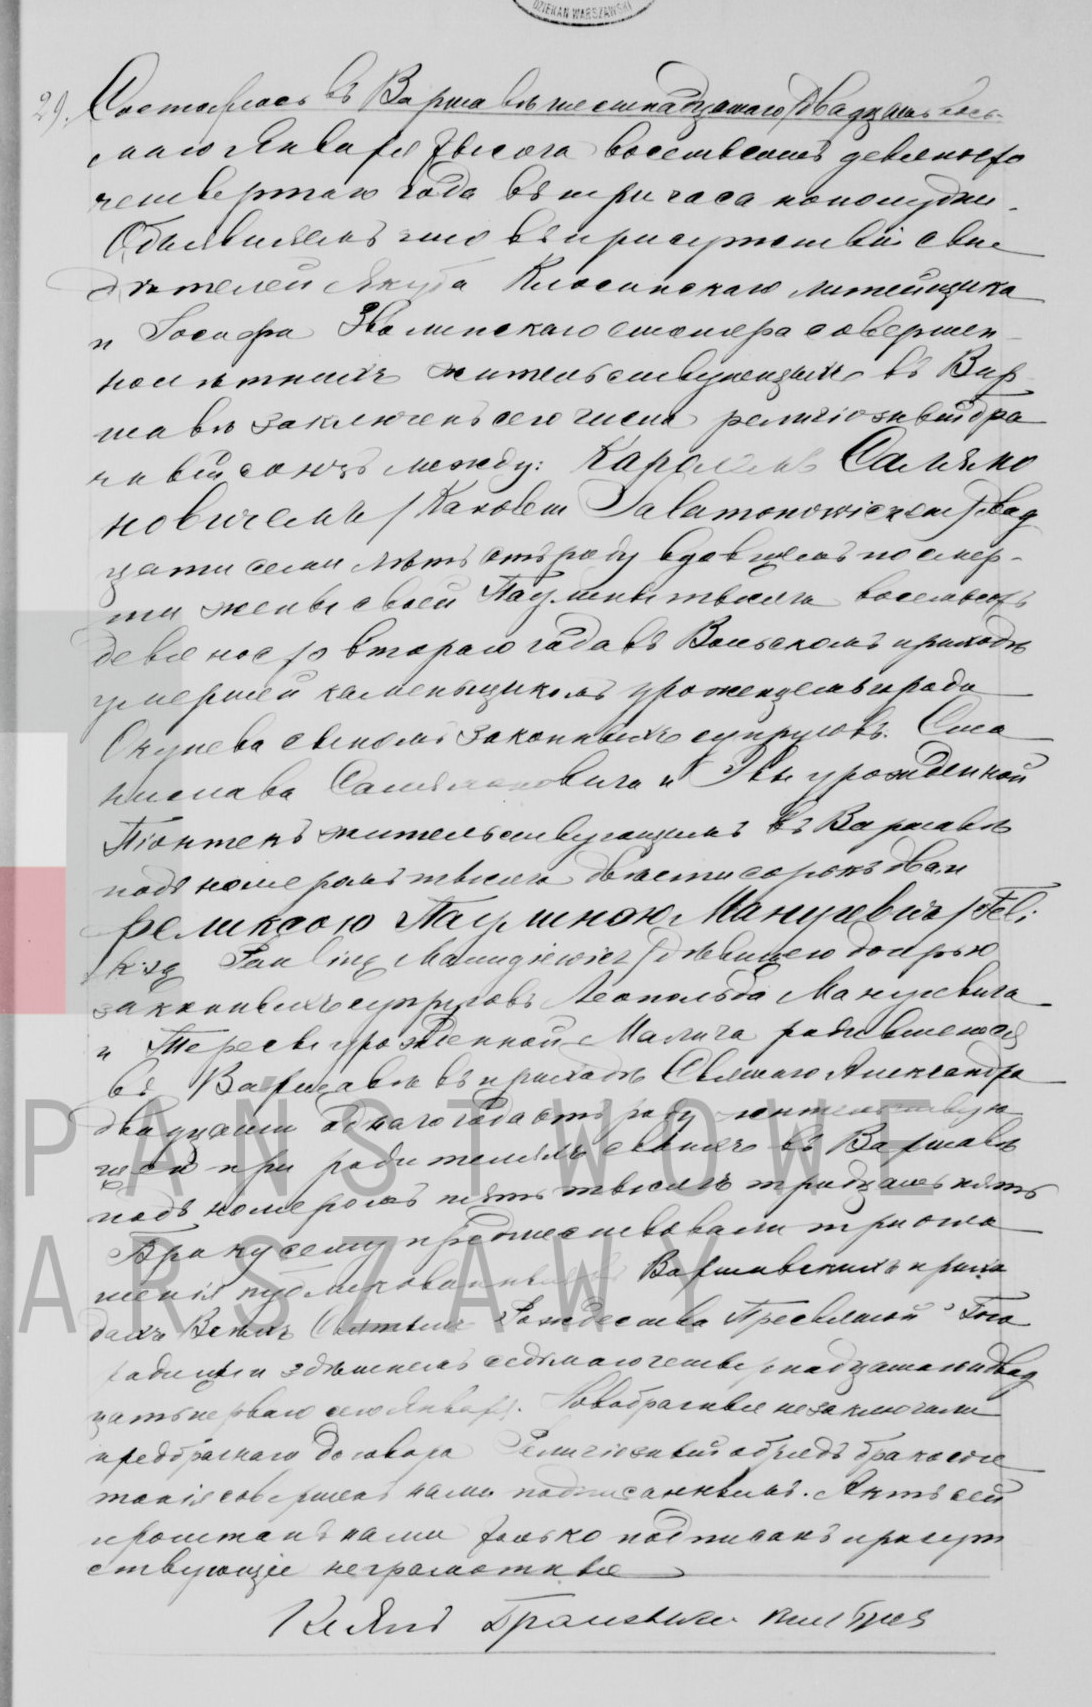 DZIEKAN WARSZAWSKI
29. Состоялось въ Варшавѣ шестнадцатаго /двадцать вось-
маго Января тысяча восемьсотъ девяносто
четвертаго года въ три часа пополудни.
Объявляемъ что въ присутствіи сви
дѣтелей Якуба литейщика
и Іосифа столяра совершен
нолѣтнихъ жительствующихъ въ Вар
шавѣ заключенъ сего числа религіозный бра
чный союзъ между: Каролемъ Саламо
новичемъ / Karolem Salamonowiczem / двад
цати семи лѣтъ отъ роду вдовцемъ по смер-
ти жены своей Паулины тысяча восемьсотъ
девяносто втораго года въ Вольскомъ приходѣ
умершей каменьщикомъ уроженцемъ града
Окунева сыномъ законныхъ супруговъ Ста
нислава Саламоновича и Эвы урожденной
Піонтекъ жительствующимъ въ Варшавѣ
подъ номеромъ тысяча двѣсти сорокъ два и
Феликсою Паулиною Манугевичъ / Feli
ksą Pauliną Manugiewicz / дѣвицею дочерью
законныхъ супруговъ Леопольда Манугевича
и Тересы урожденной Малича родившеюся
въ Варшавѣ въ приходѣ Святаго Александра
двадцати одного года отъ роду жительствую
щею при родителяхъ своихъ въ Варшавѣ
подъ номеромъ пять тысячъ тридцать пять
Браку сему предшествовали три огла
шенія публикованныя въ Варшавскихъ прихо
дахъ Всѣхъ Святыхъ Рождества Пресвятой Бого
родицы и здѣшнемъ седьмаго четвернадцатаго и двад
цать перваго сего Января. Новобрачные не заключали
предбрачнаго договора Религіозный обрядъ бракосоче
танія совершенъ нами подписаннымъ. Актъ сей
прочитанъ нами только подписанъ присут
ствующіе неграмотные
Кс Янъ
PAŃSTWOWE
ARSZAWY